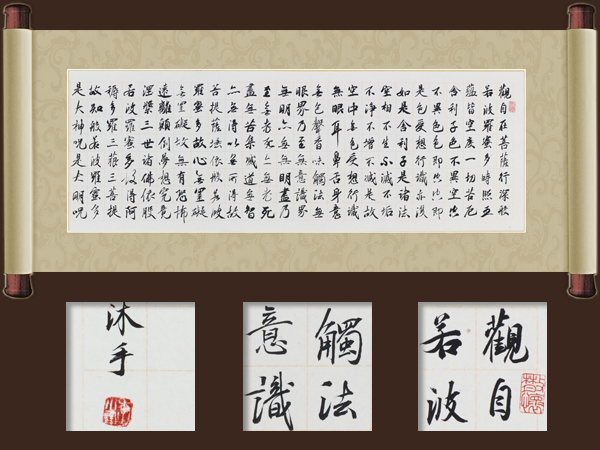 觀自在菩薩行深般
若波羅蜜多時照五
蘊皆空度一切苦厄
舍利子色不異空空
不異色色即是空空即
是色受想行識亦復
如是舍利子是諸法
空相不生不滅不垢
不淨不增不減是故
空中無色受想行識
無眼耳鼻舌身意
無色聲香味觸法無
眼界乃至無意識界
無無明亦無無明盡乃
至無老死亦無老死
盡無苦集滅道無智
亦無得以無所得故
菩提薩埵依般若波
羅蜜多故心無罣礙
無罣礙故無有恐怖
遠離顛倒夢想究竟
涅槃三世諸佛依般
若波羅蜜多故得阿
耨多羅三藐三菩提
故知般若波羅蜜多
是大神咒是大明咒
沐手
觸法
意識
觀自
若波